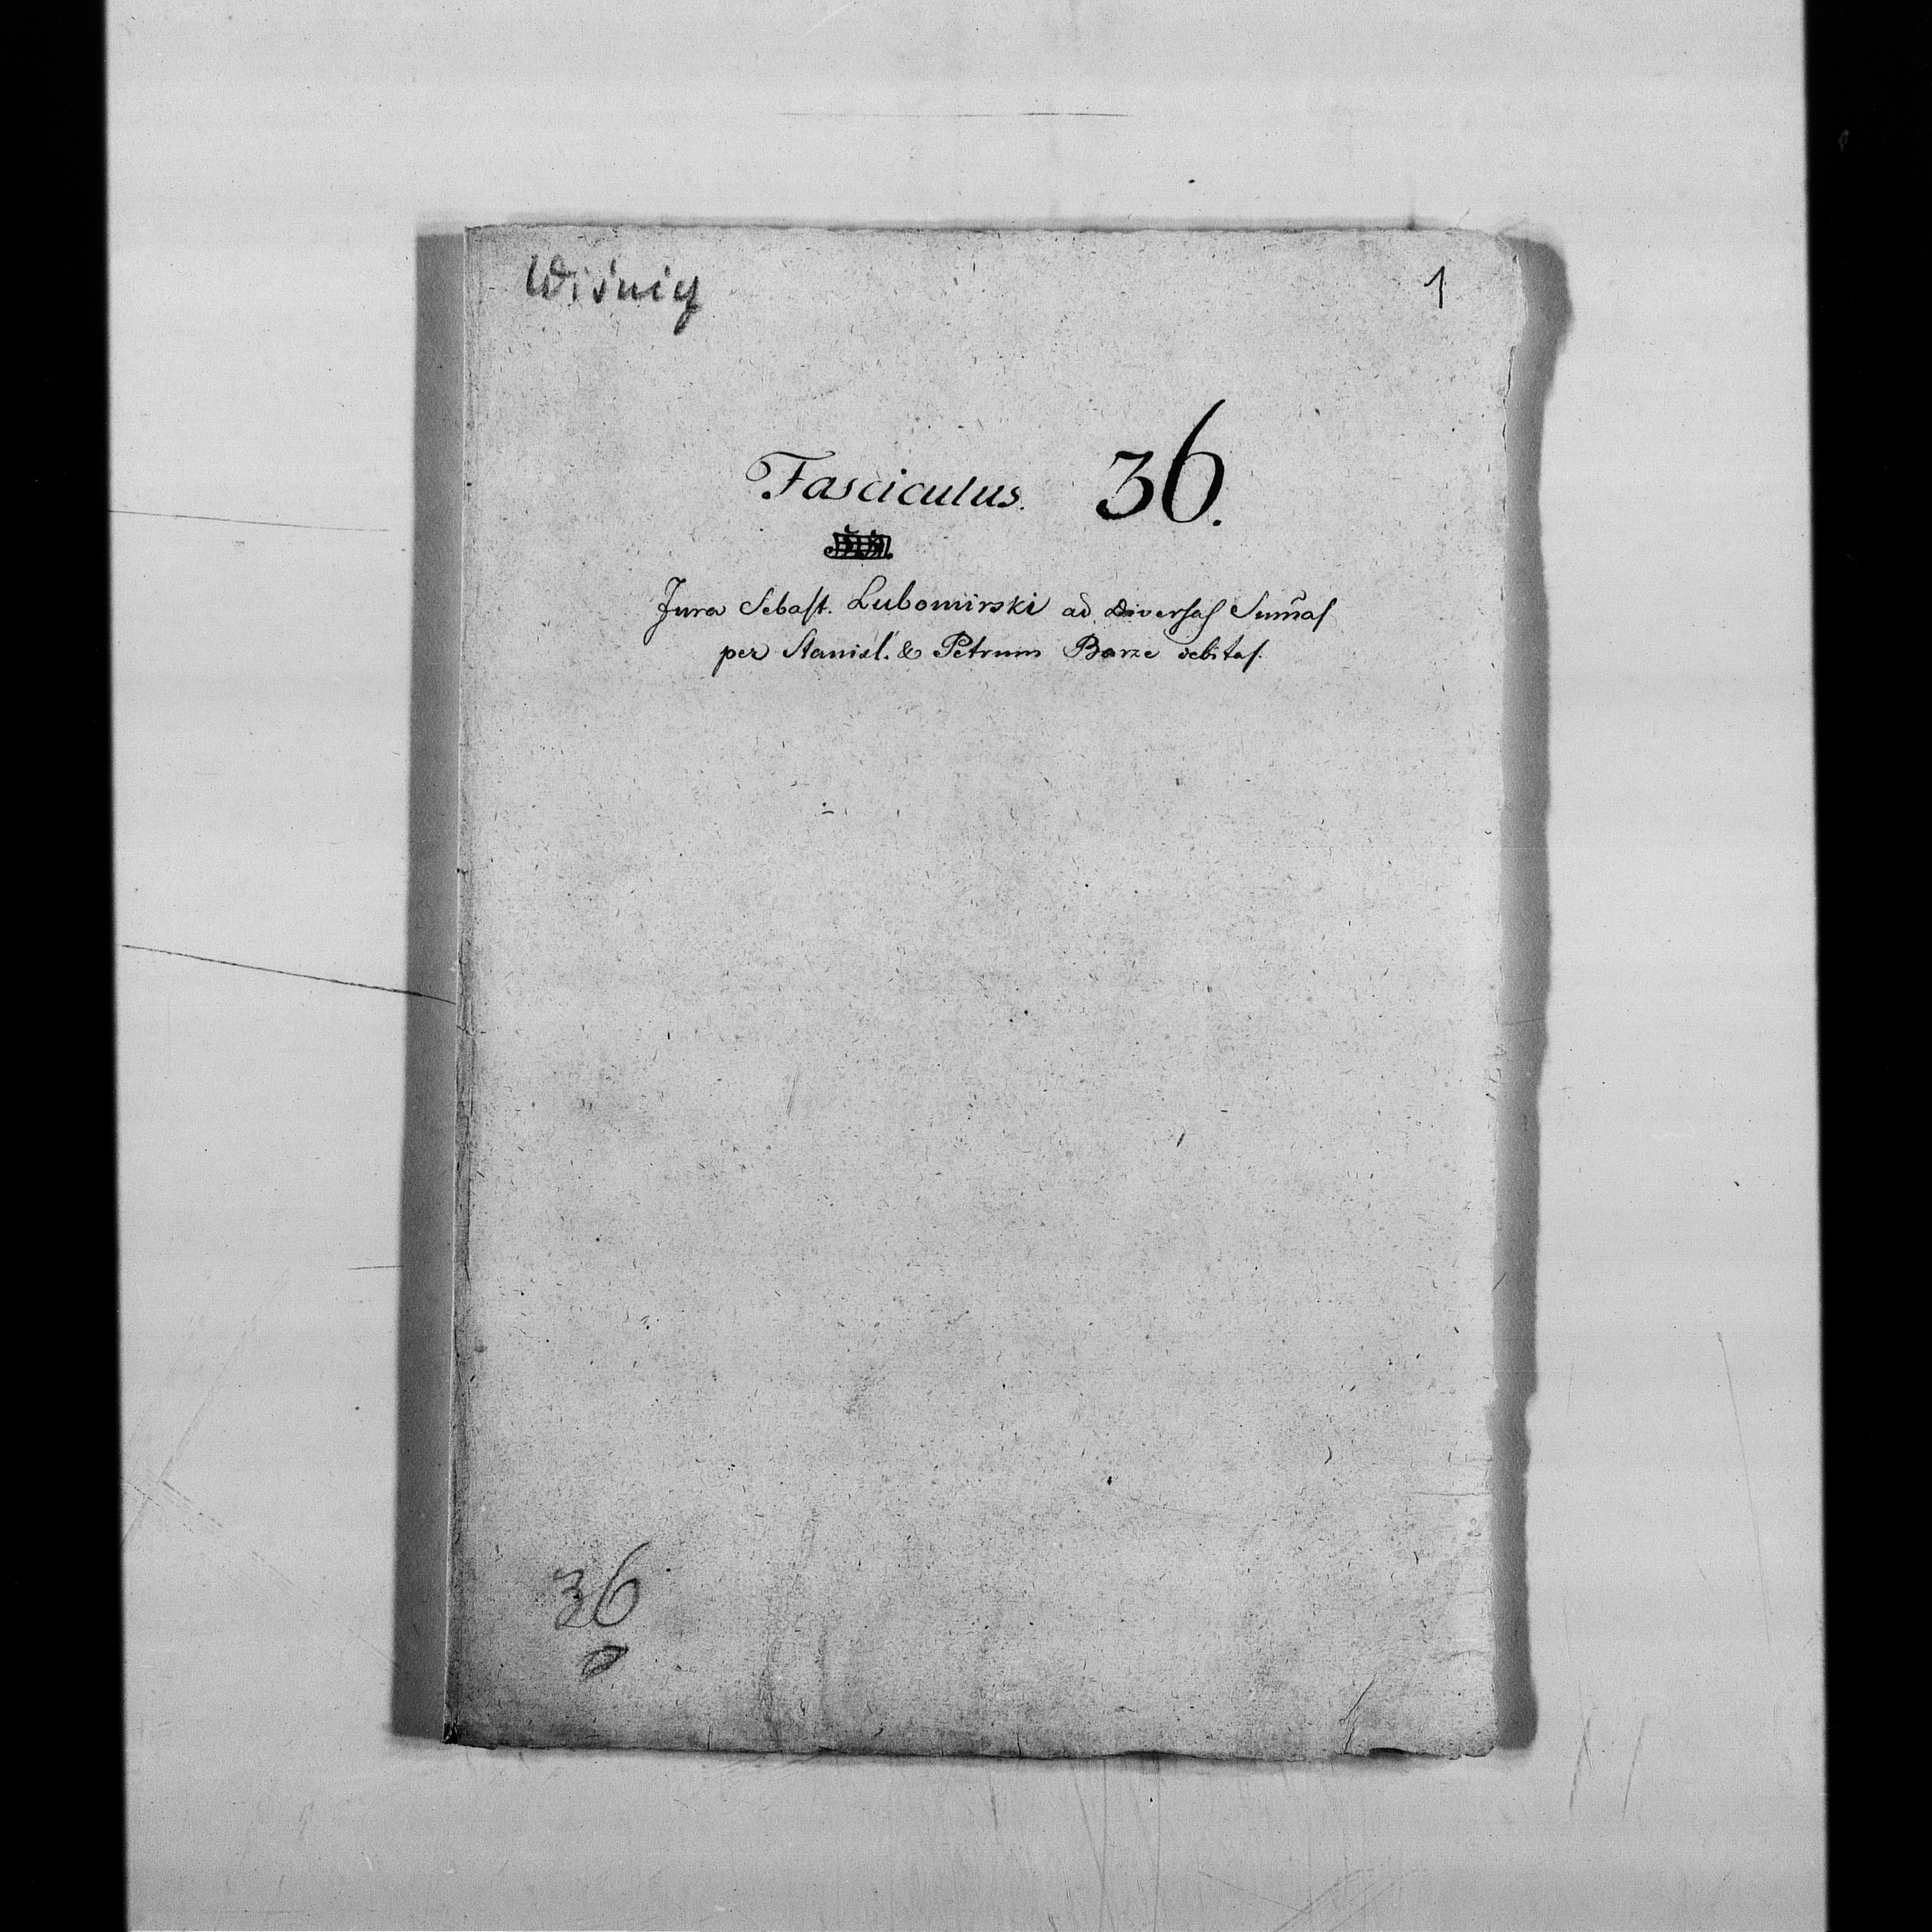 Wiśnicz
1
Fasciculus. 36.
Jura Sebast. Lubomirski ad diversas Sum̃as
per Stanisl. & Petrum Barze debitas.
36